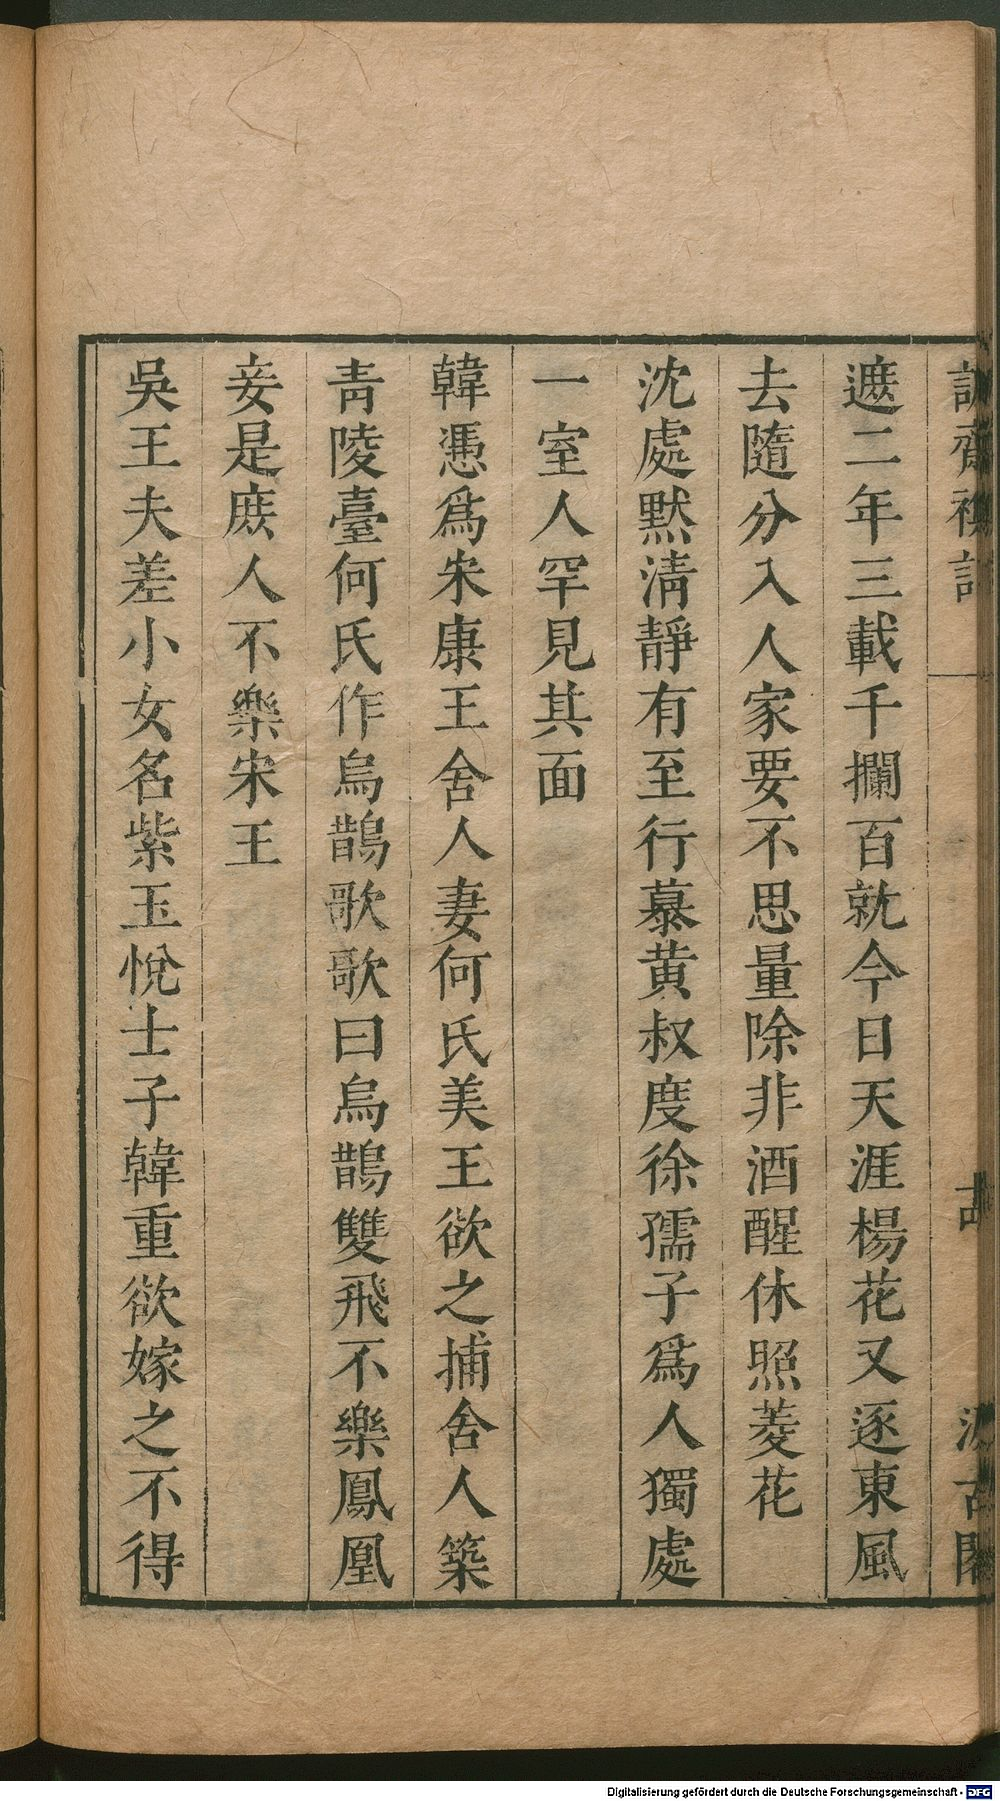 遮二年三載千攔百就今日天涯楊花又逐東風
去隨分入人家要不思量除非酒醒休照菱花
沈處默淸靜有至行慕黄叔度徐孺子爲人獨處
一室人罕見其面
韓憑爲宋康王舍人妻何氏美王欲之捕舍人築
靑陵臺何氏作烏鵲歌歌曰烏鵲雙飛不樂鳳凰
妾是庶人不樂宋王
吳王夫差小女名紫玉悅士子韓重欲嫁之不得
Digitalisierung gefördert durch die Deutsche Forschungsgemeinschaft - DFG